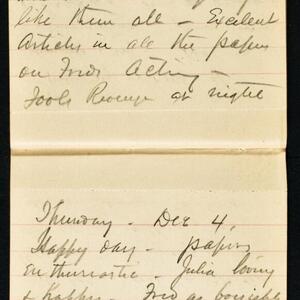 like them all - Excelent
Articles in all the papers
on Freds Acting -
Fools Revenge at night
Thursday - Dec 4,
Happy day - papers
enthusiastic - Julia loving
& Happy - Fred as